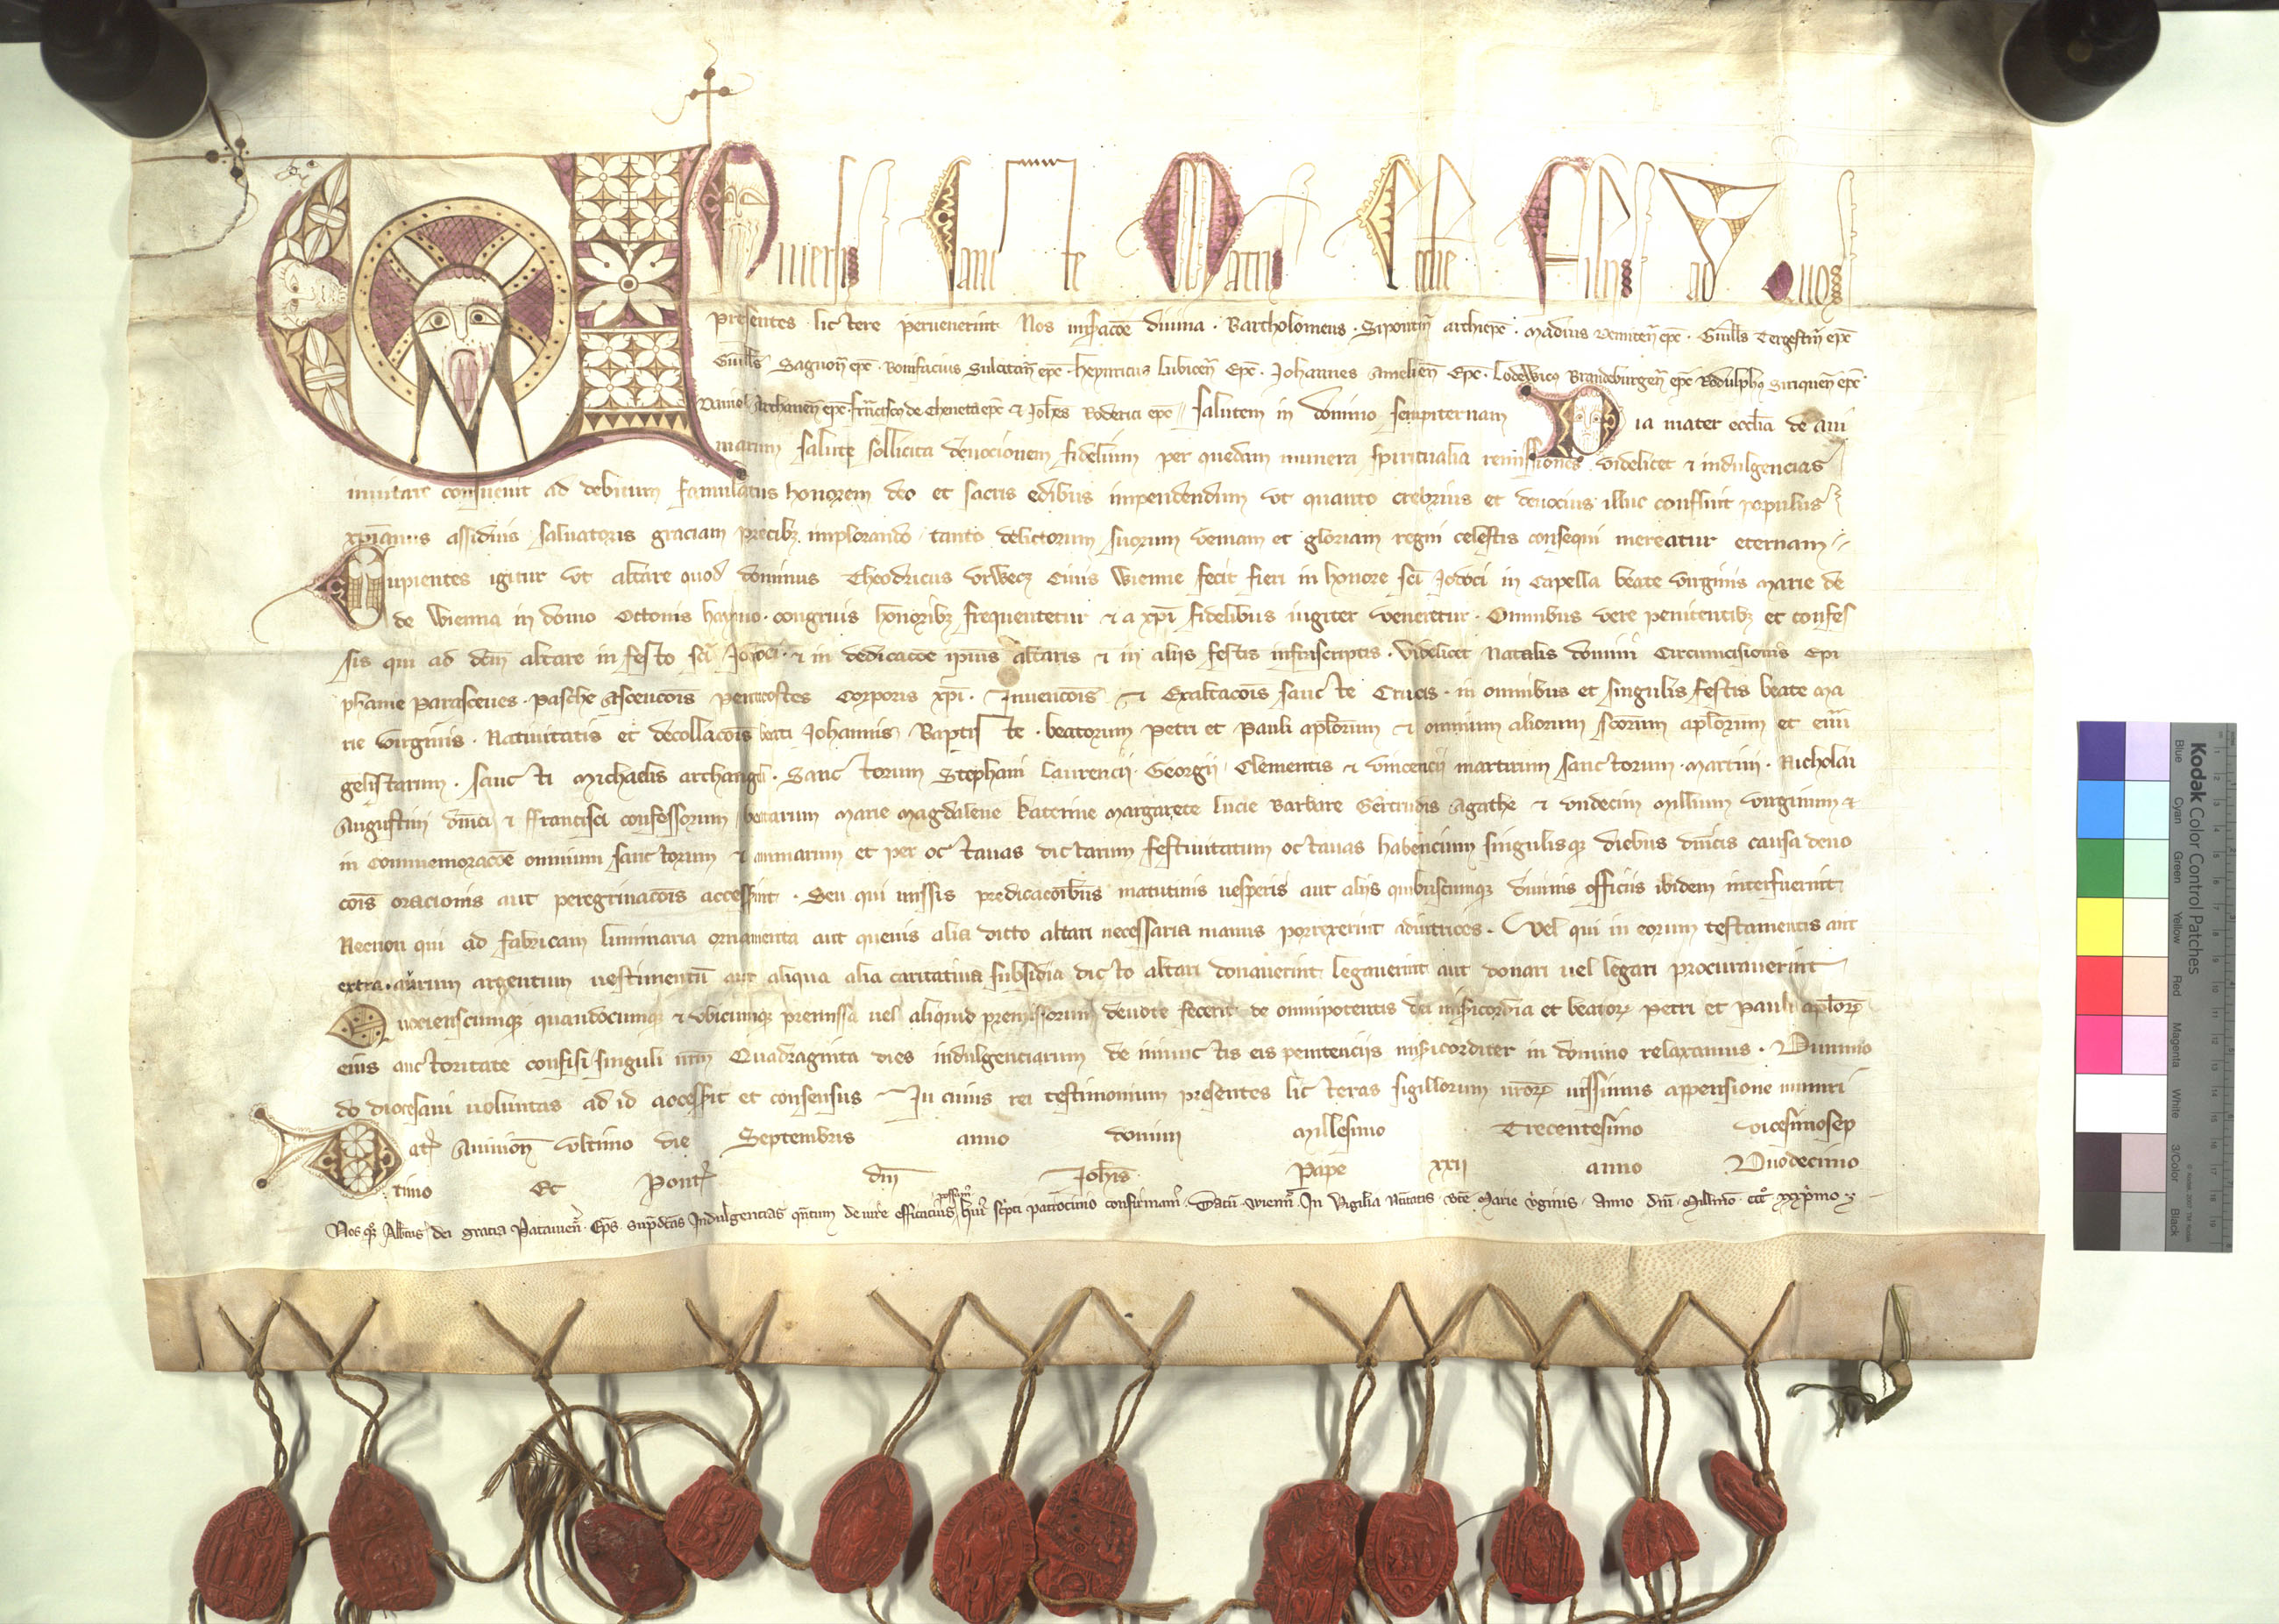 UNiuersis Sancte Matris Ecclesie Filiis ad Quos
presentes lictere peruenerint Nos miseracoe diuina . Bartholomeus . Sipontin archiepc . Madius Demiten epc . Guills Tergestin epc
Guills Sagnon epc . Bonifacius Sulcitan epc . Heynricus Lubicen Epc . Johannes Amelien Epc . Lodewics Brandeburgen epc Rodulphs Siriquen epc
Archauen epc . francisc de Cheneta epc & Johes Roderici epc salutem in domino sempiternam Pia mater ecclia de ani
marum salute sollicita deuocionem fidelium per quedam munera spiritualia remissiones videlicet & indulgencias
inuitare consueuit ad debitum famulatus honorem deo et sacris edibus impendendum vt quanto crebrius et deuocius illuc confluit populus
xpianus assidius saluatoris graciam precibz implorando tanto delictorum suorum veniam et gloriam regni celestis consequi mereatur eternam
Cupientes igitur vt altare quod dominus Theodricus vrwecz Ciuis Wienne fecit fieri in honore sci Jodoci in Capella beate virginis Marie de
de Wienna in domo Ottonis haymo . congruis honoribz frequentetur & a xpi fidelibus iugiter veneretur . Omnibus vere penitentibz et confes
sis qui ad dcm altare in festo sci Jodoci . & in dedicacoe ipius altaris & in alijs festis infrascriptis . videlicet Natalis domini Circumcisionis Epi
phanie Parasceues . Pasche Ascencois Pentecostes Corporis xpi . Inuencois & Exaltacois sancte Crucis . in omnibus et singulis festis beate Ma
rie virginis . Natiuitatis et decollacois beati Johannis Baptiste . beatorum Petri et Pauli aplorum & omnium aliorum scorum aplorum et eua
gelistarum . sancti Michaelis archangeli . Sanctorum Stephani Laurencij . Georgij Clementis & Vincencij martirum sanctorum . Martini . Nicholai
Augustini dnici & ffrancisci confessorum beatarum Marie Magdalene Katerine Margarete Lucie Barbare Gertrudis Agathe & vndecim Millium virginum &
in Commemoracoe omnium sanctorum & animarum et per octauas dictarum festiuitatum octauas habencium singulisqz diebus dnicis causa deuo
cois oracionis aut peregrinacois accesserint . Seu qui missis predicacoibus matutinis uesperis aut alijs quibuscumqz diuinis officiis ibidem interfuerint
Necnon qui ad fabricam luminaria ornamenta aut queuis alia dicto altari necessaria manus porrexerint adiutrices . Vel qui in eorum testamentis aut
extra . aurum argentum uestimentu aut aliqua alia caritatiua subsidia dicto altari donauerint legauerint aut donari uel legari procurauerint
Quocienscumqz quandocumqz & vbicumqz premissa uel aliquid premissorum deuote fecerit de omnipotentis dei misicordia et beator Petri et Pauli aplor
eius auctoritate confisi singuli nrm Quadraginta dies indulgenciarum de iniunctis eis penitenciis misicorditer in domino relaxamus . Dummo
do diocesani uoluntas ad id accesserit et consensus In cuius rei testimonium presentes licteras sigillorum nror iussimus appensione muniri
Dat Auinion vltimo die Septembris anno domini Millesimo Trecentesimo vicesimosep
timo Et Pont dni Johis Pape xxii anno Duodecimo
Nos qz Albtus dei gratia Patauien Eps supdcas Indulgencias qntum de iure efficacius possum hui scpti patrocinio confirmam . Datu Wienn . In Vigilia Natitatis bte Marie vginis . Anno dni . Millmo ccc xxxpmo